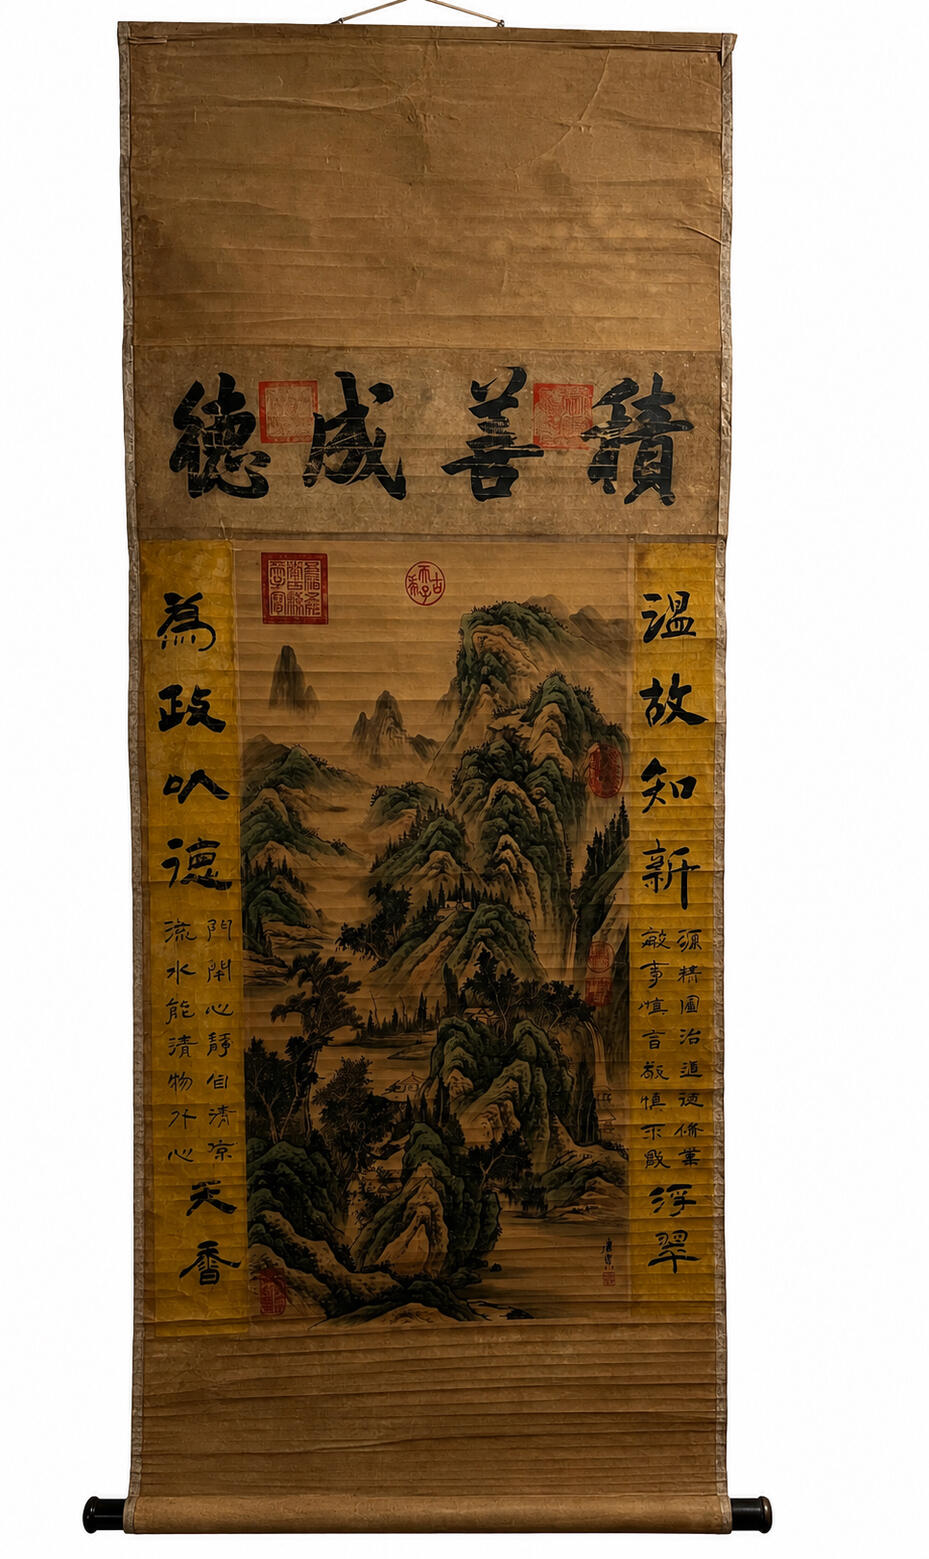 積善成德
溫故知新
源精圖治道德脩業
敏事慎言敬慎不敗
浮翠
為政以德
門閑心靜自清涼
流水能清物外心
天香
古希天子